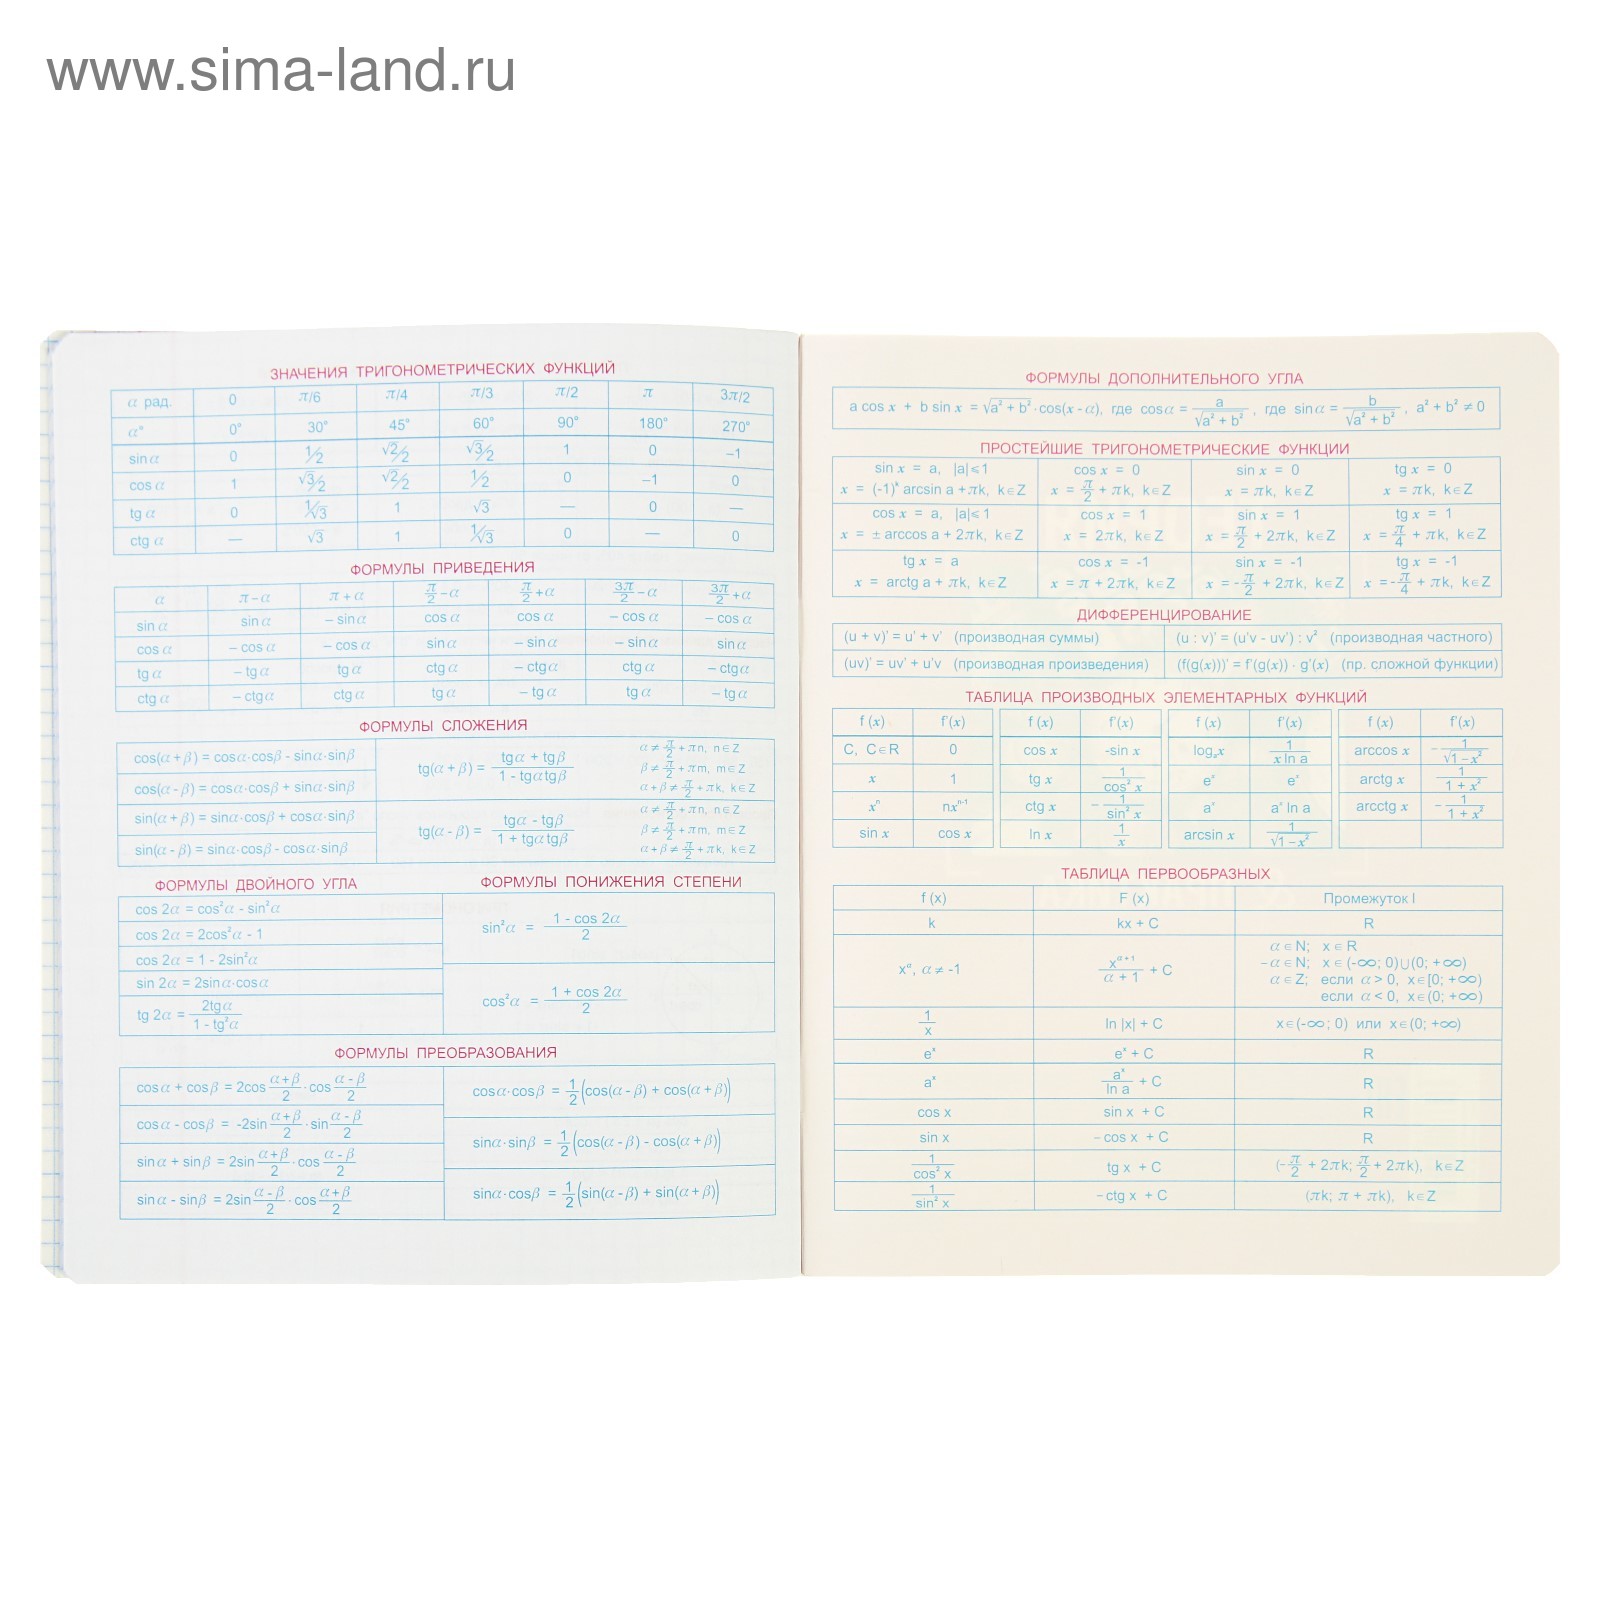 www.sima-land.ru
ЗНАЧЕНИЯ ТРИГОНОМЕТРИЧЕСКИХ ФУНКЦИЙ
α рад. 0 π/6 π/4 π/3 π/2 π 3π/2
α° 0° 30° 45° 60° 90° 180° 270°
sin α 0 1/2 √2/2 √3/2 1 0 –1
cos α 1 √3/2 √2/2 1/2 0 –1 0
tg α 0 1/√3 1 √3 — 0 —
ctg α — √3 1 1/√3 0 — 0
ФОРМУЛЫ ПРИВЕДЕНИЯ
α π – α π + α π/2 – α π/2 + α 3π/2 – α 3π/2 + α
sin α sin α – sin α cos α cos α – cos α – cos α
cos α – cos α – cos α sin α – sin α – sin α sin α
tg α – tg α tg α ctg α – ctg α ctg α – ctg α
ctg α – ctg α ctg α tg α – tg α tg α – tg α
ФОРМУЛЫ СЛОЖЕНИЯ
cos(α + β) = cosα·cosβ - sinα·sinβ
cos(α - β) = cosα·cosβ + sinα·sinβ
sin(α + β) = sinα·cosβ + cosα·sinβ
sin(α - β) = sinα·cosβ - cosα·sinβ
tg(α + β) = (tgα + tgβ)/(1 - tgαtgβ)
α ≠ π/2 + πn, n∈Z
β ≠ π/2 + πm, m∈Z
α + β ≠ π/2 + πk, k∈Z
tg(α - β) = (tgα - tgβ)/(1 + tgαtgβ)
α ≠ π/2 + πn, n∈Z
β ≠ π/2 + πm, m∈Z
α + β ≠ π/2 + πk, k∈Z
ФОРМУЛЫ ДВОЙНОГО УГЛА
cos 2α = cos²α - sin²α
cos 2α = 2cos²α - 1
cos 2α = 1 - 2sin²α
sin 2α = 2sinα·cosα
tg 2α = 2tgα/(1 - tg²α)
ФОРМУЛЫ ПОНИЖЕНИЯ СТЕПЕНИ
sin²α = (1 - cos 2α)/2
cos²α = (1 + cos 2α)/2
ФОРМУЛЫ ПРЕОБРАЗОВАНИЯ
cosα + cosβ = 2cos (α+β)/2 · cos (α-β)/2
cosα - cosβ = -2sin (α+β)/2 · sin (α-β)/2
sinα + sinβ = 2sin (α+β)/2 · cos (α-β)/2
sinα - sinβ = 2sin (α-β)/2 · cos (α+β)/2
cosα·cosβ = 1/2 (cos(α-β) + cos(α+β))
sinα·sinβ = 1/2 (cos(α-β) - cos(α+β))
sinα·cosβ = 1/2 (sin(α-β) + sin(α+β))
ФОРМУЛЫ ДОПОЛНИТЕЛЬНОГО УГЛА
a cos x + b sin x = √(a² + b²)·cos(x - α), где cosα = a/√(a² + b²), где sinα = b/√(a² + b²), a² + b² ≠ 0
ПРОСТЕЙШИЕ ТРИГОНОМЕТРИЧЕСКИЕ ФУНКЦИИ
sin x = a, |a|⩽1 cos x = 0 sin x = 0 tg x = 0
x = (-1)ᵏ arcsin a + πk, k∈Z x = π/2 + πk, k∈Z x = πk, k∈Z x = πk, k∈Z
cos x = a, |a|⩽1 cos x = 1 sin x = 1 tg x = 1
x = ± arccos a + 2πk, k∈Z x = 2πk, k∈Z x = π/2 + 2πk, k∈Z x = π/4 + πk, k∈Z
tg x = a cos x = -1 sin x = -1 tg x = -1
x = arctg a + πk, k∈Z x = π + 2πk, k∈Z x = -π/2 + 2πk, k∈Z x = -π/4 + πk, k∈Z
ДИФФЕРЕНЦИРОВАНИЕ
(u + v)' = u' + v' (производная суммы) (u : v)' = (u'v - uv') : v² (производная частного)
(uv)' = uv' + u'v (производная произведения) (f(g(x)))' = f'(g(x)) · g'(x) (пр. сложной функции)
ТАБЛИЦА ПРОИЗВОДНЫХ ЭЛЕМЕНТАРНЫХ ФУНКЦИЙ
f (x) f'(x) f (x) f'(x) f (x) f'(x) f (x) f'(x)
C, C∈R 0 cos x -sin x logₐx 1/(x ln a) arccos x – 1/√(1–x²)
x 1 tg x 1/cos² x eˣ eˣ arctg x 1/(1 + x²)
xⁿ nxⁿ⁻¹ ctg x – 1/sin² x aˣ aˣ ln a arcctg x – 1/(1 + x²)
sin x cos x ln x 1/x arcsin x 1/√(1–x²)
ТАБЛИЦА ПЕРВООБРАЗНЫХ
f (x) F (x) Промежуток I
k kx + C R
xᵅ, α ≠ -1 xᵅ⁺¹/(α + 1) + C α∈N; x∈R
–α∈N; x∈(-∞; 0)∪(0; +∞)
α∈Z; если α > 0, x∈[0; +∞)
если α < 0, x∈(0; +∞)
1/x ln |x| + C x∈(-∞; 0) или x∈(0; +∞)
eˣ eˣ + C R
aˣ aˣ/ln a + C R
cos x sin x + C R
sin x – cos x + C R
1/cos² x tg x + C (-π/2 + 2πk; π/2 + 2πk), k∈Z
1/sin² x – ctg x + C (πk; π + πk), k∈Z